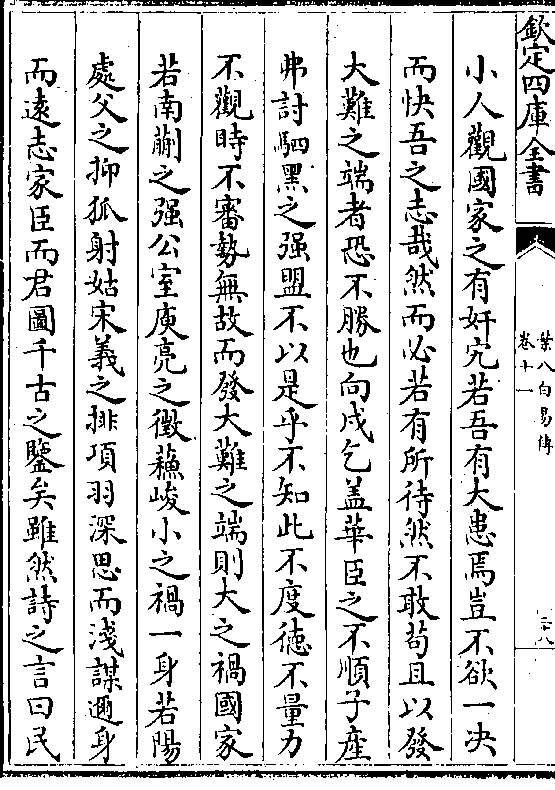 欽定四庫全書
葉八白易傳
卷十一
小人觀國家之有奸宄若吾有大患焉豈不欲一决
而快吾之志哉然而必若有所待然不敢苟且以發
大難之端者恐不勝也向戌乞盖華臣之不順子產
弗討駟黑之强盟不以是乎不知此不度徳不量力
不觀時不審勢無故而發大難之端則大之禍國家
若南蒯之强公室庾亮之徴蘓峻小之禍一身若陽
處父之抑狐射姑宋義之排項羽深思而淺謀邇身
而逺志家臣而君圖千古之鑒矣雖然詩之言曰民